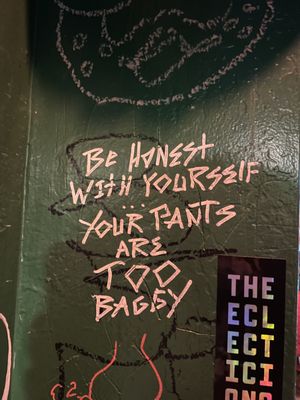 BE HONEST
WITH YOURSELF
...
YOUR PANTS
ARE
TOO
BAGGY
THE
ECL
ECT
ICI
ONS